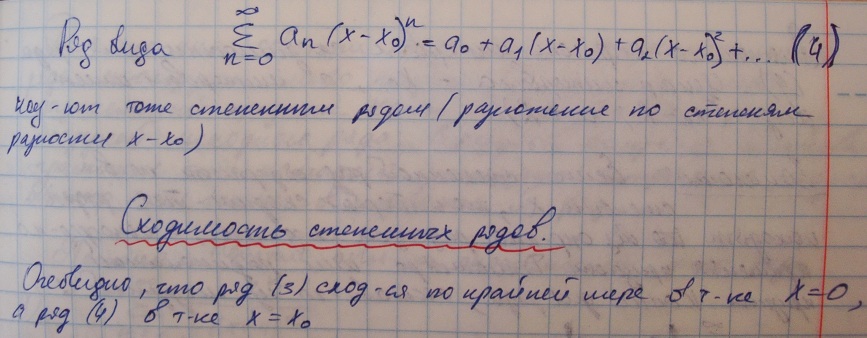 Ряд вида ∑_{n=0}^{∞} aₙ(x-x₀)ⁿ = a₀ + a₁(x-x₀) + a₂(x-x₀)² + ... (4)
наз-ют тоже степенным рядом (разложение по степеням
разности x-x₀)
Сходимость степенных рядов.
Очевидно, что ряд (3) сход-ся по крайней мере в т-ке x=0,
а ряд (4) в т-ке x = x₀